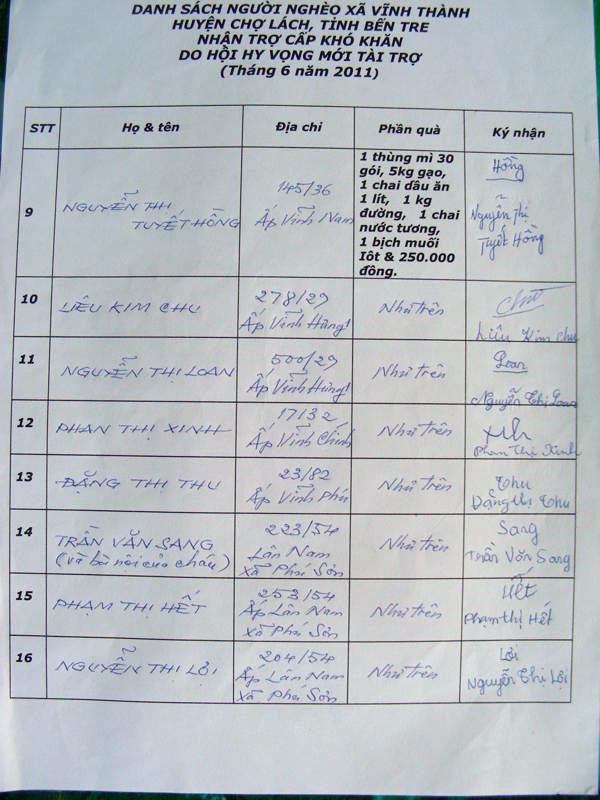 DANH SÁCH NGƯỜI NGHÈO XÃ VĨNH THÀNH
HUYỆN CHỢ LÁCH, TỈNH BẾN TRE
NHẬN TRỢ CẤP KHÓ KHĂN
DO HỘI HY VỌNG MỚI TÀI TRỢ
(Tháng 6 năm 2011)
STT Họ & tên Địa chỉ Phần quà Ký nhận
9
NGUYỄN THỊ
TUYẾT HỒNG
145/36
Ấp Vĩnh Nam
1 thùng mì 30
gói, 5kg gạo,
1 chai dầu ăn
1 lít, 1 kg
đường, 1 chai
nước tương,
1 bịch muối
Iôt & 250.000
đồng.
Hồng
Nguyễn Thị
Tuyết Hồng
10
LIÊU KIM CHU
278/29
Ấp Vĩnh Hưng 1
Như trên
Chu
Liêu Kim Chu
11
NGUYỄN THỊ LOAN
500/29
Ấp Vĩnh Hưng 1
Như trên
Loan
Nguyễn Thị Loan
12
PHAN THỊ XINH
17132
Ấp Vĩnh Chính
Như trên
Phan Thị Xinh
13
ĐẶNG THỊ THU
23/82
Ấp Vĩnh Phú
Như trên
Thu
Đặng Thị Thu
14
TRẦN VĂN SANG
(và bà nội của cháu)
223/54
Lân Nam
Xã Phú Sơn
Như trên
Sang
Trần Văn Sang
15
PHẠM THỊ HẾT
253/54
Ấp Lân Nam
Xã Phú Sơn
Như trên
Hết
Phạm Thị Hết
16
NGUYỄN THỊ LỢI
204/54
Ấp Lân Nam
Xã Phú Sơn
Như trên
Lợi
Nguyễn Thị Lợi